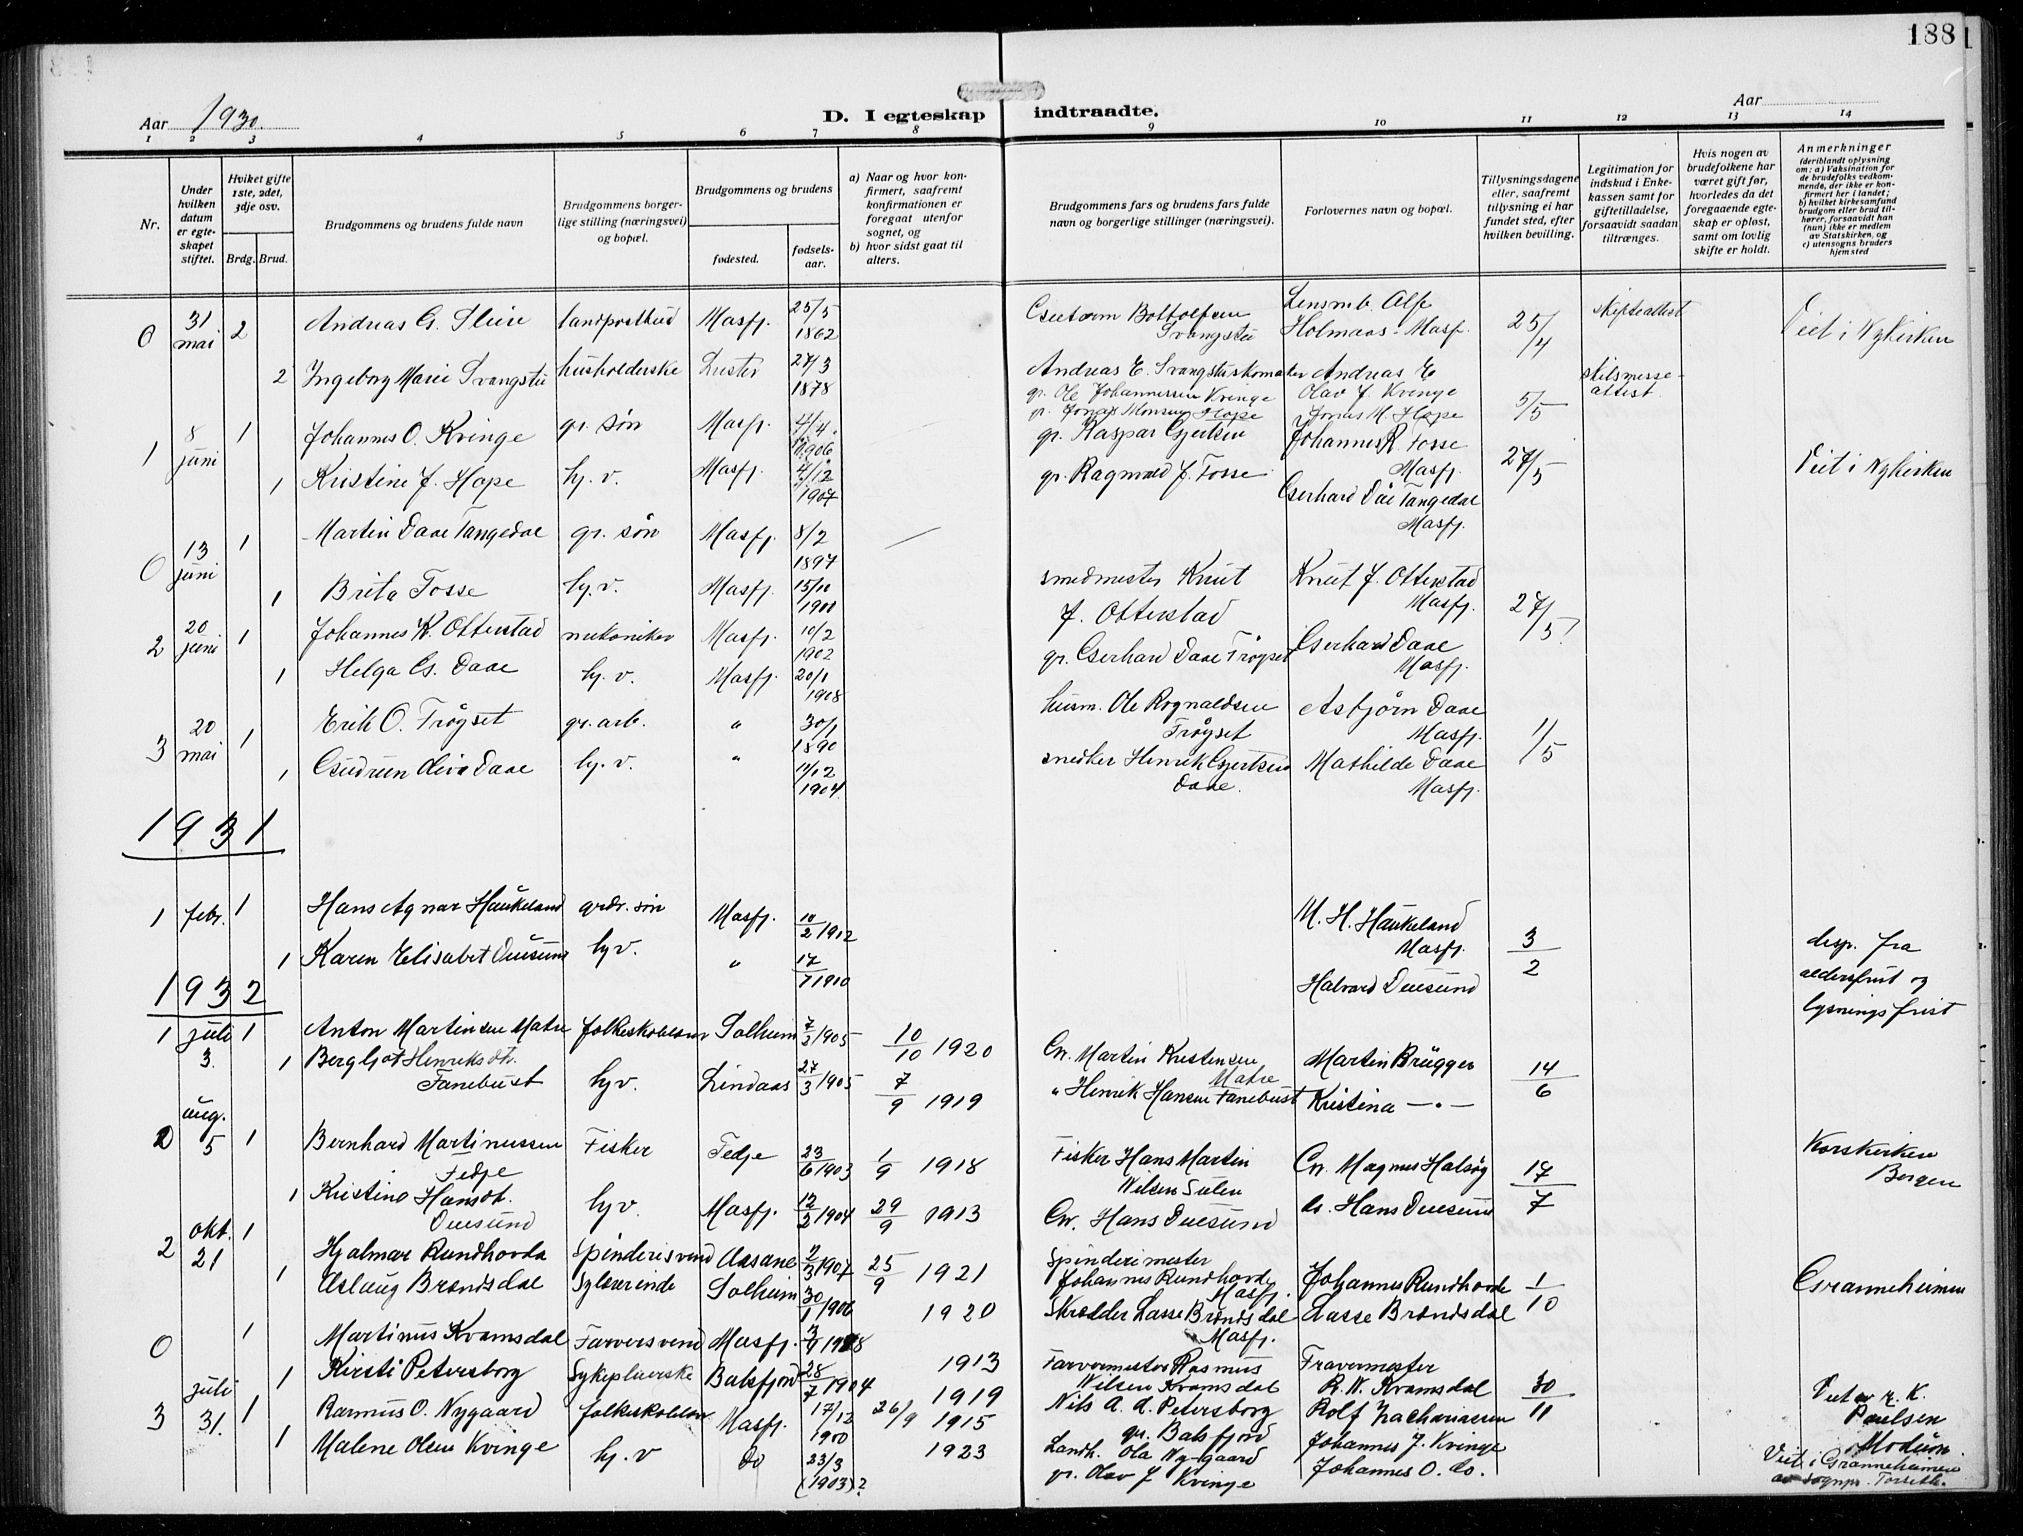 188
Aar 1930
D. I egteskap indtraadte.
Aar
1 2 3 4 5 6 7 8 9 10 11 12 13 14
Nr.
Under hvilken datum er egteskapet stiftet.
Hviket gifte 1ste, 2det, 3dje osv.
Brdg. Brud.
Brudgommens og brudens fulde navn
Brudgommens borgerlige stilling (næringsvei) og bopæl.
Brudgommens og brudens
fødested.
fødselsaar.
a) Naar og hvor konfirmert, saafremt konfirmationen er foregaat utenfor sognet, og
b) hvor sidst gaat til alters.
Brudgommens fars og brudens fars fulde navn og borgerlige stillinger (næringsvei).
Forlovernes navn og bopæl.
Tillysningsdagene eller, saafremt tillysning ei har fundet sted, efter hvilken bevilling.
Legitimation for indskud i Enkekassen samt for giftetilladelse, forsaavidt saadan tiltrænges.
Hvis nogen av brudefolkene har været gift før, hvorledes da det foregaaende egteskap er opløst, samt om lovlig skifte er holdt.
Anmerkninger (deriblandt oplysning om: a) Vaksination for de brudefolks vedkommende, der ikke er konfirmert her i landet; b) hvilket kirkesamfund brudgom eller brud tilhører, forsaavidt han (hun) ikke er medlem av Statskirken, og c) utensogns bruders hjemsted
0 31 mai 2 Andreas G. landpostbud Masfj. 25/5 1862 Svangstu Lensmb. Alf Holmaas - Masf. 25/4 skifteattest Viet i Nykirken
2 Ingeborg Marie Svangstu husholderske Luster 27/3 1878 Andreas E. Svangstu Andreas E skilsmesse-attest
gr. Ole Johannessen Kvinge Olav J. Kvinge 5/5
gr. Jonas Monsen Hope Jonas M. Hope
1 8 juni 1 Johannes O. Kvinge gr. søn Masfj. 4/4 1906 gr. Kaspar Gjertsen Johannes R. Fosse Masfj. 27/5 Viet i Nykirken
1 Kristine J. Hope hj. v. Masfj. 4/12 1907 gr. Ragnvald J. Fosse Gerhard Daae Tangedal Masfj.
0 13 juni 1 Martin Daae Tangedal gr. søn Masfj. 8/2 1897
1 Brita Fosse hj. v. Masfj. 15/10 1900 smedmester Knut Knut J. Otterstad Masfj. 27/5
2 20 juni 1 Johannes K. Otterstad mekaniker Masfj. 10/2 1902 J. Otterstad
1 Helga G. Daae hj. v. Masfj. 20/1 1908 gr. Gerhard Daae Frøyset Gerhard Daae Masfj.
3 20 mai 1 Erik O. Frøyset gr. arb. " 30/1 1890 husm. Ole Rognaldsen Frøyset Asbjørn Daae Masfj. 1/5
1 Gudrun Oliva Daae hj. v. " 11/12 1904 snedker Henrik Gjertsen Daae. Mathilde Daae Masfj.
1931
1 febr. 1 Hans Agnar Haukeland grdr. søn Masfj. 10/2 1912 M. H. Haukeland Masfj. 3/2 desp. fra aldersfrist og lysningsfrist
1 Karen Elisabet Duesund hj v. " 17/7 1910 Halvard Duesund
1932
1 juli 3. 1 Anton Martinsen Matre folkeskolelær Solheim 7/3 1905 10/10 1920 Gr. Martin Kristensen Matre Martin Brügger 14/6
1 Bergljot Henriksdt. Fanebust hj v. Lindaas 27/3 1905 7/9 1919 " Henrik Hansen Fanebust Kristina —"—
2 aug. 5 1 Bernhard Martinussen Fedje Fisker Fedje 23/6 1903 1/9 1918 Fisker Hans Martin Nilsen Gr. Magnus Halsøy 17/7 Korskirken Bergen
1 Kristina Hansdt. Duesund hj v. Masfj. 12/2 1904 29/9 1913 Gr. Hans Duesund Gr. Hans Duesund
2 okt. 21 1 Hjalmar Rundhovde Spinderisvend Aasane 2/3 1907 25/9 1921 Spinderimester Johannes Rundhovde Masfj. Johannes Rundhovde 1/10 Granneheimen
1 Aslaug Brøndsdal Sylærerinde Solheim 30/1 1906 1920 Skrædder Lasse Brøndsdal Masfj. Lasse Brøndsdal
0 1 Martinus Kvamsdal Farversvend Masfj. 1913 Farvermester Rasmus Nilsen Kvamsdal Fravermester R. N. Kvamsdal 30/11 Viet av r. K. Paulsen i Modum
1 Kirsti Petersborg Sykepleierske Balsfjord 28/7 1904 1919 Nils A. A. Petersborg gr. Balsfjord Rolf Zachariassen
3 juli 31. 1 Rasmus O. Nygaard folkeskolelær Masfj. 17/12 1900 26/9 1915 Landh. Ola Nygaard Johannes J. Kvinge Viet i Granneheimen av sognpr. Forseth.
1 Malene Olsen Kvinge hj. v do 23/3 (1903)? 1923 gr. Olav J Kvinge Johannes O. do.